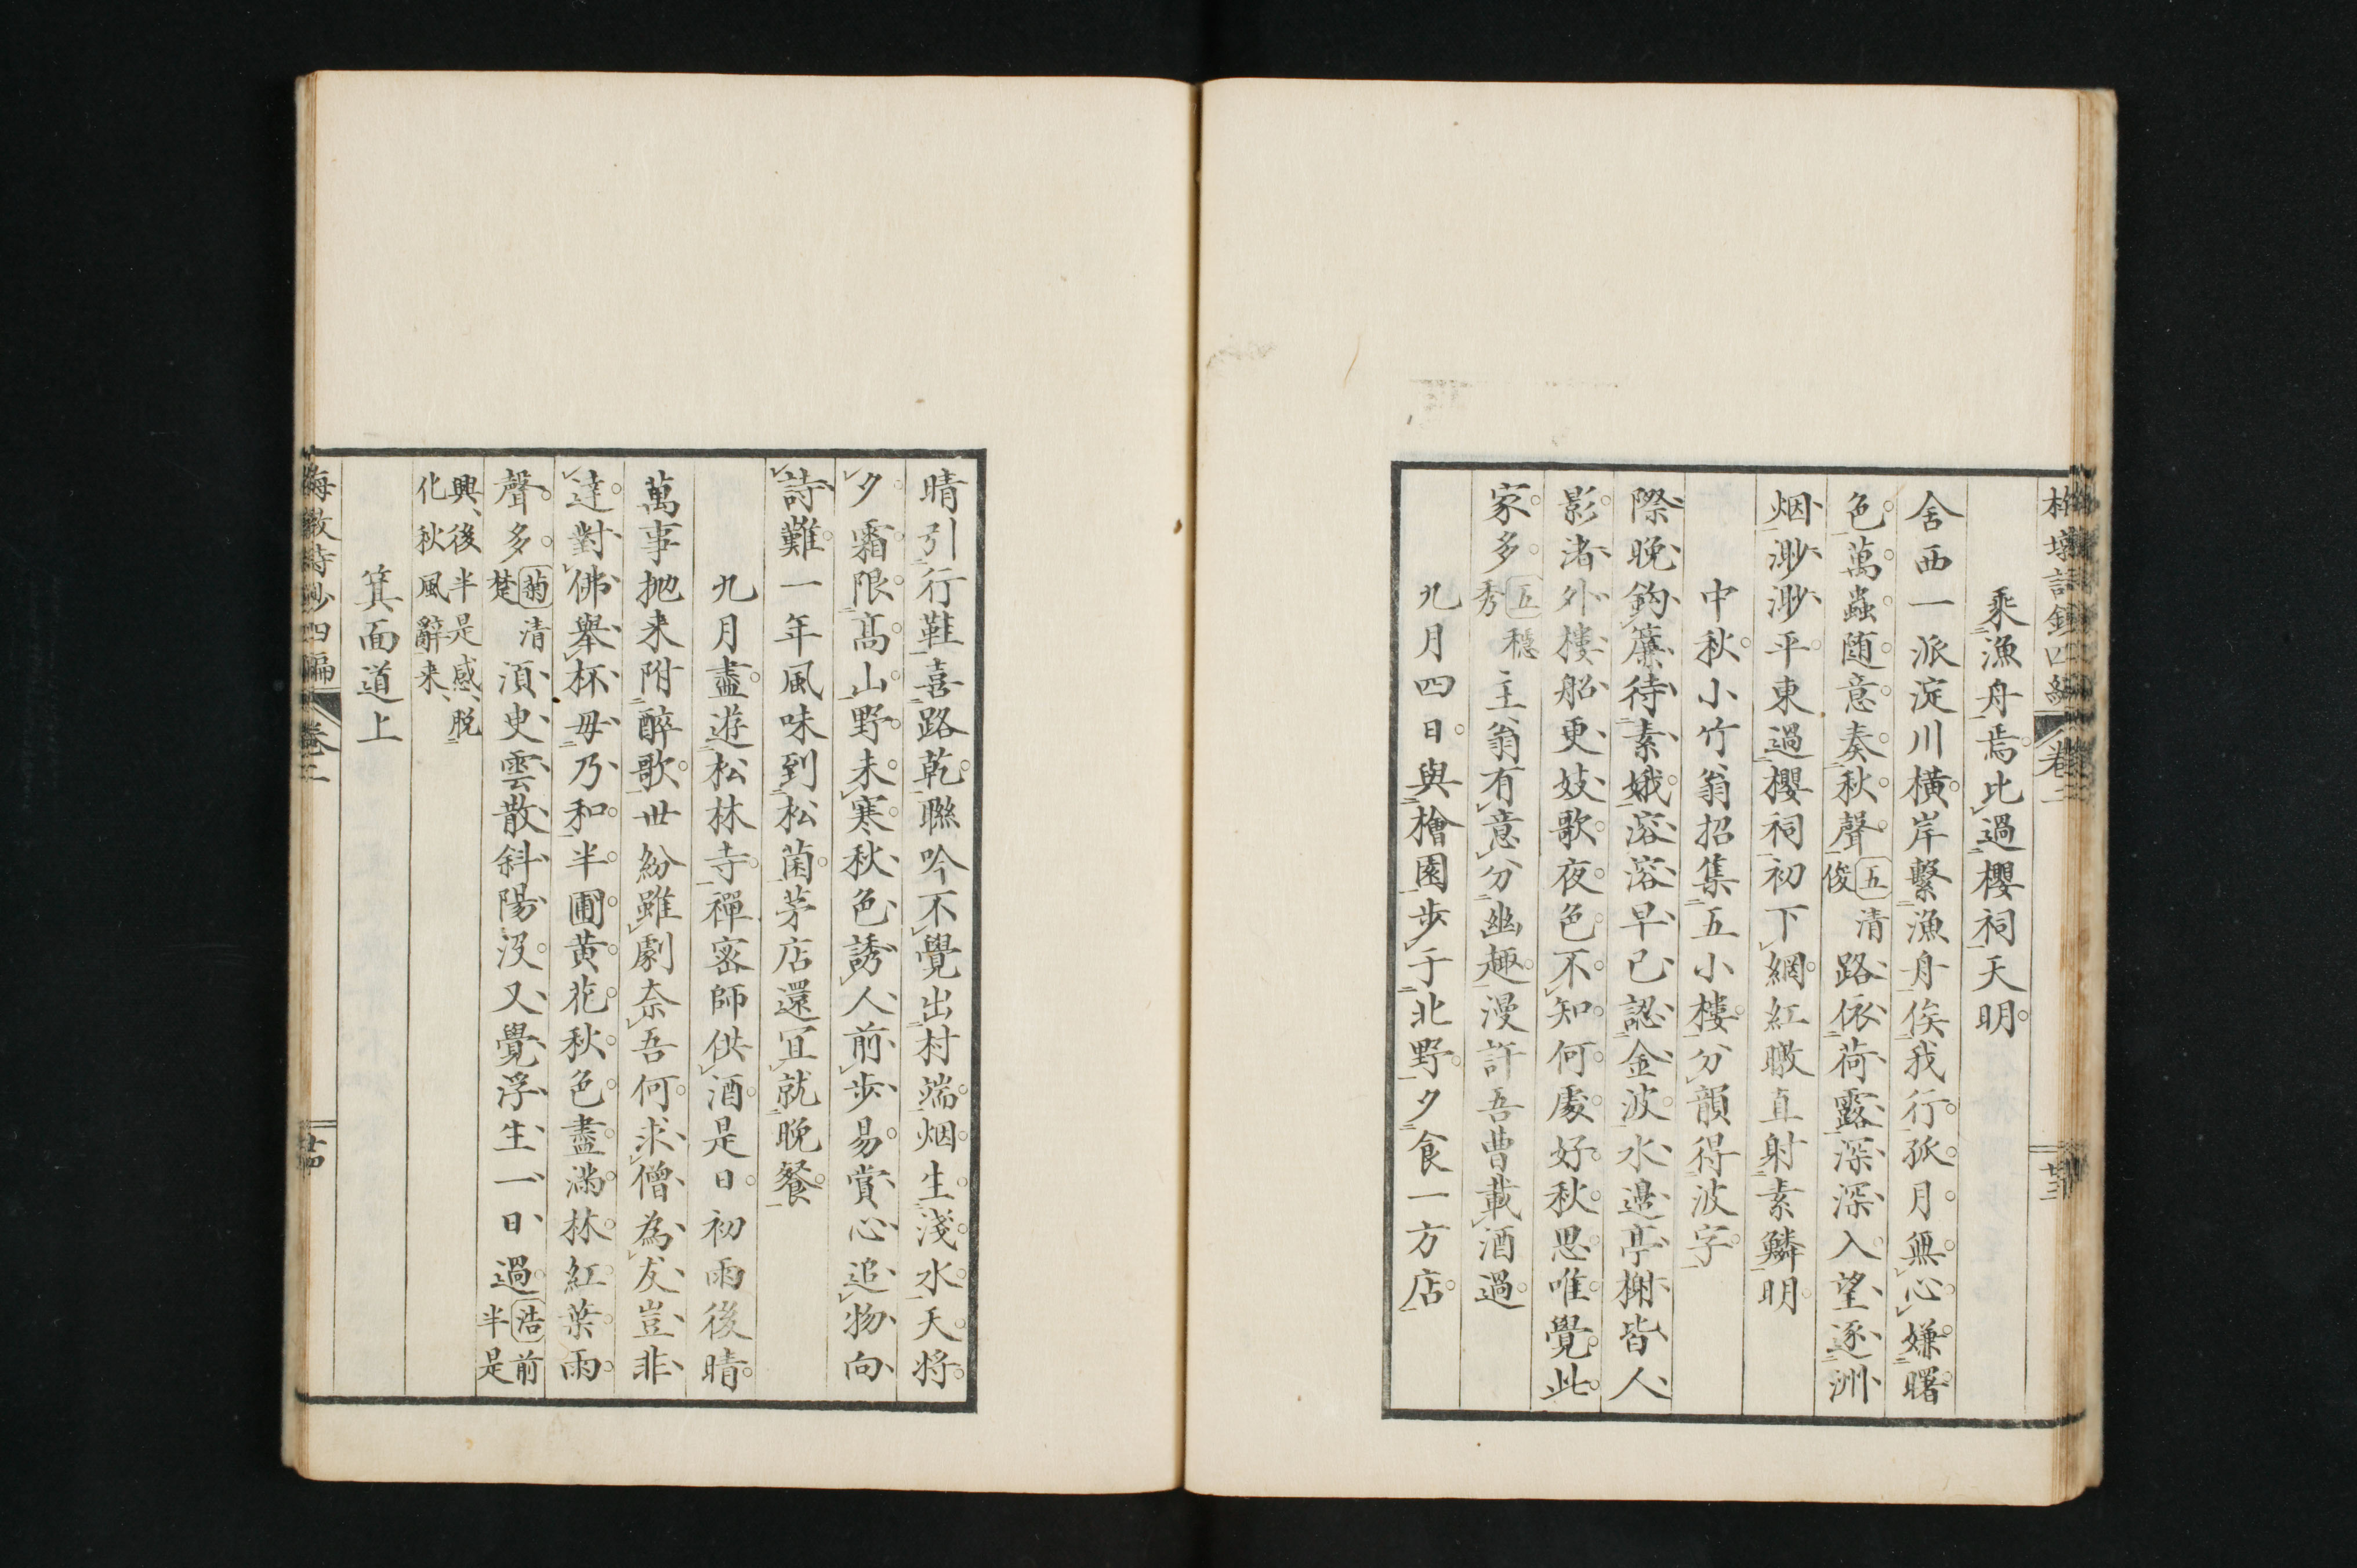 乘漁舟焉比過櫻祠天明
舍西一派淀川橫岸繫漁舟俟我行孤月無心嫌曙
色萬蟲随意奏秋聲五清俊路依荷露深深入望逐洲
烟渺渺平東過櫻祠初下網紅暾直射素鱗明
中秋小竹翁招集五小樓分韻得波字
際晚鈎簾待素娥溶溶早已認金波水邊亭榭皆人
影渚外樓船更妓歌夜色不知何處好秋思唯覺此
家多五穩秀主翁有意分幽趣漫許吾曹載酒過
九月四日與檜園步于北野夕食一方店
晴引行鞋喜路乾聯吟不覺出村端烟生淺水天将
夕霜限髙山野未寒秋色誘人前步易賞心追物向
詩難一年風味到松菌茅店還冝就晚餐
九月盡遊松林寺禪宻師供酒是日初雨後晴
萬事抛来附醉歌世紛雖劇奈吾何求僧為友豈非
達對佛舉杯毋乃和半圃黄花秋色盡滿林紅葉雨
聲多菊清楚湏史雲散斜陽没又覺浮生一日過浩前半是
興後半是感脱
化秋風辭来
箕面道上
梅墩詩鈔四編 卷二 廿四